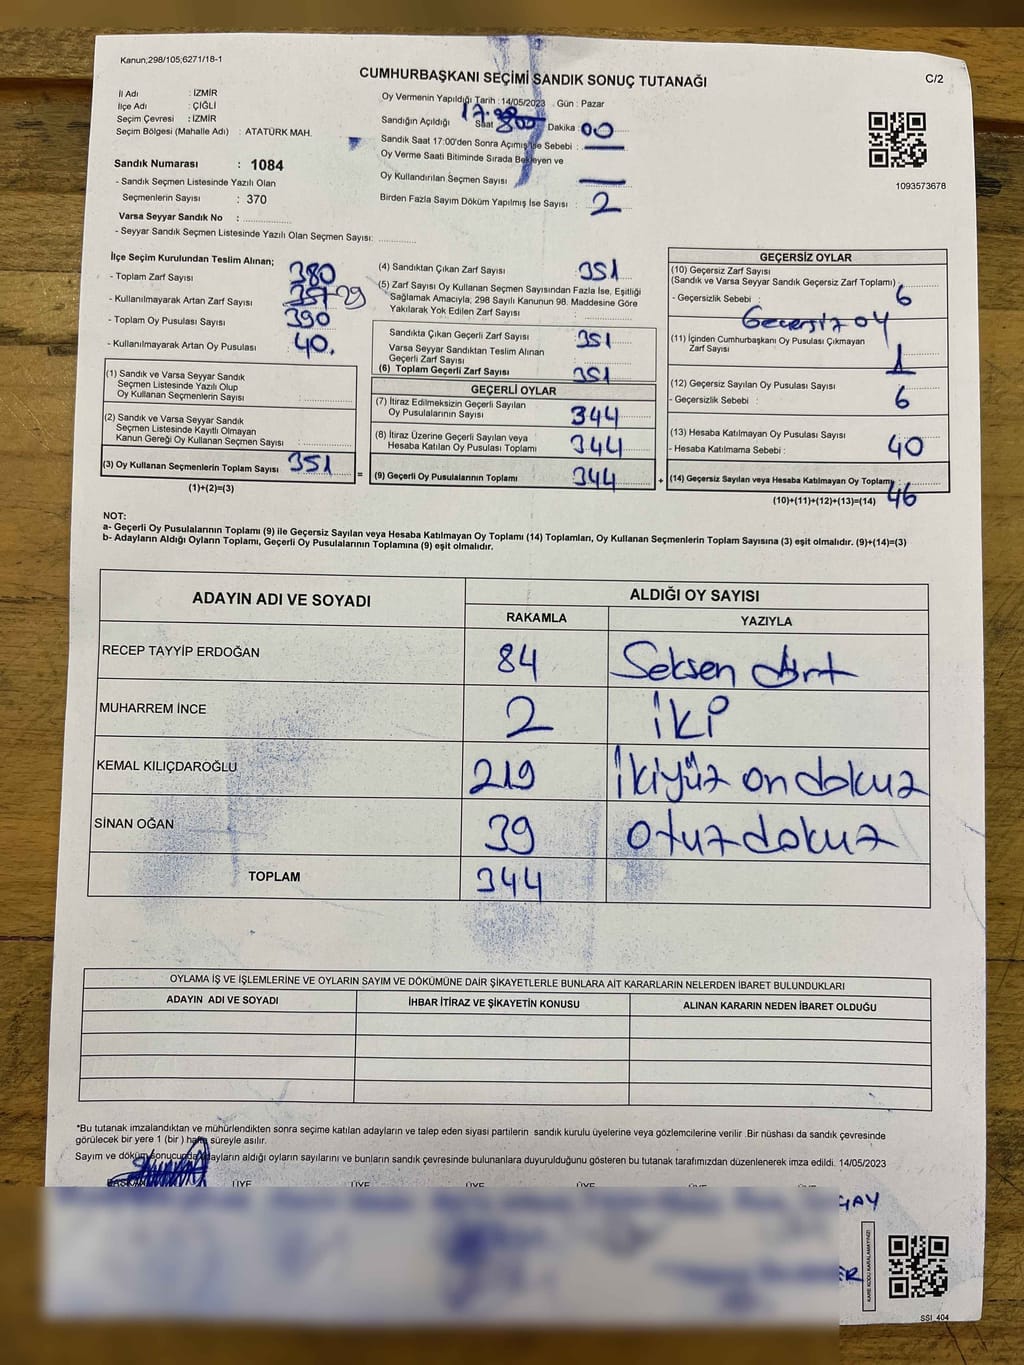 Kanun;298/105;6271/18-1
CUMHURBAŞKANI SEÇİMİ SANDIK SONUÇ TUTANAĞI
C/2
İl Adı : İZMİR
İlçe Adı : ÇİĞLİ
Seçim Çevresi : İZMİR
Seçim Bölgesi (Mahalle Adı) : ATATÜRK MAH.
Sandık Numarası : 1084
- Sandık Seçmen Listesinde Yazılı Olan
Seçmenlerin Sayısı : 370
Varsa Seyyar Sandık No :
- Seyyar Sandık Seçmen Listesinde Yazılı Olan Seçmen Sayısı:
Oy Vermenin Yapıldığı Tarih : 14/05/2023 . Gün : Pazar
Sandığın Açıldığı Saat Dakika : 00
Sandık Saat 17:00'den Sonra Açımış İse Sebebi :
Oy Verme Saati Bitiminde Sırada Bekleyen ve
Oy Kullandırılan Seçmen Sayısı
Birden Fazla Sayım Döküm Yapılmış İse Sayısı : 2
1093573678
İlçe Seçim Kurulundan Teslim Alınan;
- Toplam Zarf Sayısı : 380
- Kullanılmayarak Artan Zarf Sayısı : 29
- Toplam Oy Pusulası Sayısı : 390
- Kullanılmayarak Artan Oy Pusulası : 40.
(1) Sandık ve Varsa Seyyar Sandık
Seçmen Listesinde Yazılı Olup
Oy Kullanan Seçmenlerin Sayısı :
(2) Sandık ve Varsa Seyyar Sandık
Seçmen Listesinde Kayıtlı Olmayan
Kanun Gereği Oy Kullanan Seçmen Sayısı :
(3) Oy Kullanan Seçmenlerin Toplam Sayısı 351
(1)+(2)=(3)
=
(4) Sandıktan Çıkan Zarf Sayısı 351
(5) Zarf Sayısı Oy Kullanan Seçmen Sayısından Fazla İse, Eşitliği
Sağlamak Amacıyla; 298 Sayılı Kanunun 98. Maddesine Göre
Yakılarak Yok Edilen Zarf Sayısı :
Sandıkta Çıkan Geçerli Zarf Sayısı 351
Varsa Seyyar Sandıktan Teslim Alınan
Geçerli Zarf Sayısı
(6) Toplam Geçerli Zarf Sayısı 351
GEÇERLİ OYLAR
(7) İtiraz Edilmeksizin Geçerli Sayılan
Oy Pusulalarının Sayısı 344
(8) İtiraz Üzerine Geçerli Sayılan veya
Hesaba Katılan Oy Pusulası Toplamı 344
(9) Geçerli Oy Pusulalarının Toplamı 344
+
GEÇERSİZ OYLAR
(10) Geçersiz Zarf Sayısı
(Sandık ve Varsa Seyyar Sandık Geçersiz Zarf Toplamı) 6
- Geçersizlik Sebebi :
Geçersiz oy
(11) İçinden Cumhurbaşkanı Oy Pusulası Çıkmayan
Zarf Sayısı 1
(12) Geçersiz Sayılan Oy Pusulası Sayısı
- Geçersizlik Sebebi : 6
(13) Hesaba Katılmayan Oy Pusulası Sayısı
- Hesaba Katılmama Sebebi : 40
(14) Geçersiz Sayılan veya Hesaba Katılmayan Oy Toplamı : 46
(10)+(11)+(12)+(13)=(14)
NOT:
a- Geçerli Oy Pusulalarının Toplamı (9) ile Geçersiz Sayılan veya Hesaba Katılmayan Oy Toplamı (14) Toplamları, Oy Kullanan Seçmenlerin Toplam Sayısına (3) eşit olmalıdır. (9)+(14)=(3)
b- Adayların Aldığı Oyların Toplamı, Geçerli Oy Pusulalarının Toplamına (9) eşit olmalıdır.
ADAYIN ADI VE SOYADI
ALDIĞI OY SAYISI
RAKAMLA YAZIYLA
RECEP TAYYİP ERDOĞAN 84 Seksen dört
MUHARREM İNCE 2 iki
KEMAL KILIÇDAROĞLU 219 ikiyüz on dokuz
SİNAN OĞAN 39 otuz dokuz
TOPLAM 344
OYLAMA İŞ VE İŞLEMLERİNE VE OYLARIN SAYIM VE DÖKÜMÜNE DAİR ŞİKAYETLERLE BUNLARA AİT KARARLARIN NELERDEN İBARET BULUNDUKLARI
ADAYIN ADI VE SOYADI İHBAR İTİRAZ VE ŞİKAYETİN KONUSU ALINAN KARARIN NEDEN İBARET OLDUĞU
*Bu tutanak imzalandıktan ve mühürlendikten sonra seçime katılan adayların ve talep eden siyasi partilerin sandık kurulu üyelerine veya gözlemcilerine verilir .Bir nüshası da sandık çevresinde
görülecek bir yere 1 (bir ) hafta süreyle asılır.
Sayım ve döküm sonucunda adayların aldığı oyların sayılarını ve bunların sandık çevresinde bulunanlara duyurulduğunu gösteren bu tutanak tarafımızdan düzenlenerek imza edildi. 14/05/2023
BAŞKAN ÜYE ÜYE ÜYE ÜYE ÜYE ÜYE
KARE KODU KARALAMAYINIZ!
SSİ_404